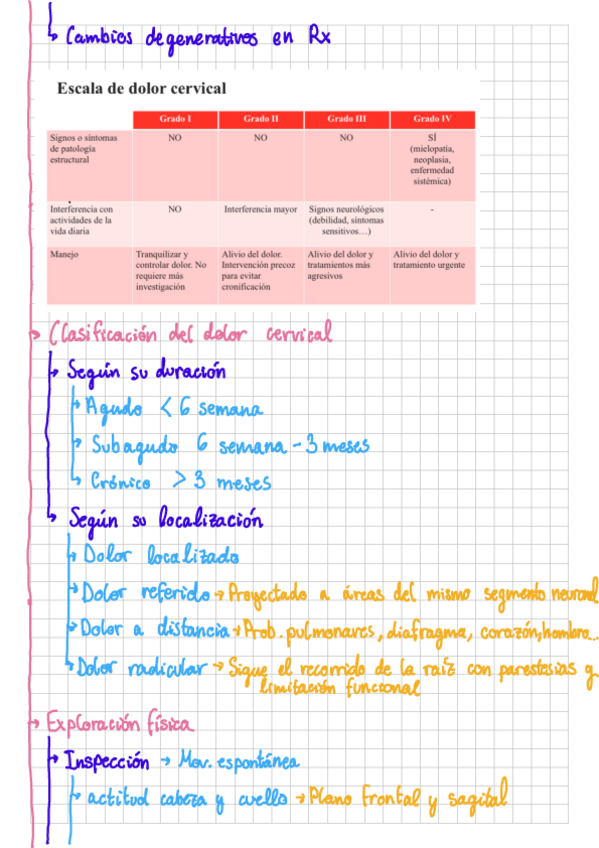 ↳ Cambios degenerativos en Rx
Escala de dolor cervical
Grado I Grado II Grado III Grado IV
Signos o síntomas de patología estructural NO NO NO SÍ (mielopatía, neoplasia, enfermedad sistémica)
Interferencia con actividades de la vida diaria NO Interferencia mayor Signos neurológicos (debilidad, síntomas sensitivos…) -
Manejo Tranquilizar y controlar dolor. No requiere más investigación Alivio del dolor. Intervención precoz para evitar cronificación Alivio del dolor y tratamientos más agresivos Alivio del dolor y tratamiento urgente
→ Clasificación del dolor cervical
→ Según su duración
→ Agudo < 6 semana
→ Subagudo 6 semana - 3 meses
↳ Crónico > 3 meses
↳ Según su localización
→ Dolor localizado
→ Dolor referido → Proyectado a áreas del mismo segmento neuronal
→ Dolor a distancia → Prob. pulmonares, diafragma, corazón, hombro...
↳ Dolor radicular → Sigue el recorrido de la raíz con parestesias y
limitación funcional
→ Exploración física
→ Inspección → Mov. espontánea
→ actitud cabeza y cuello → Plano frontal y sagital